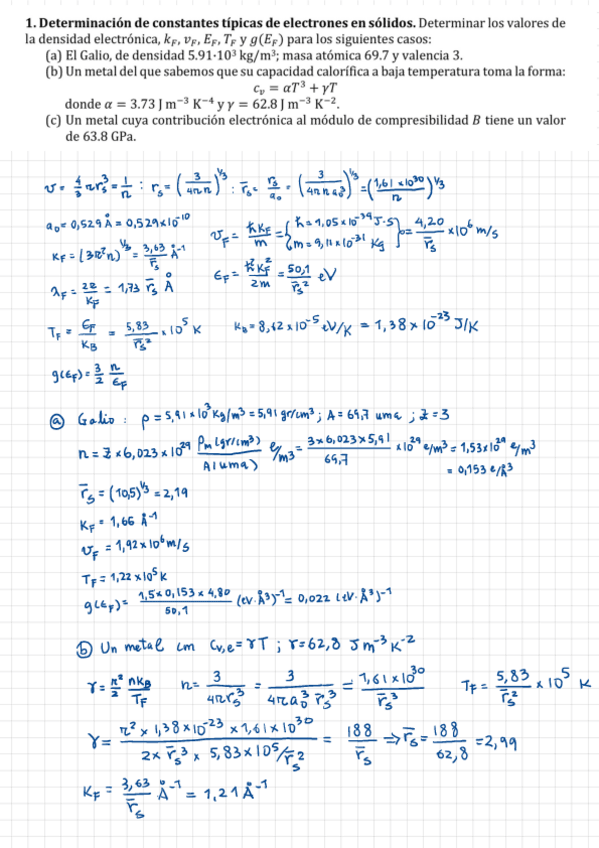 1. Determinación de constantes típicas de electrones en sólidos. Determinar los valores de
la densidad electrónica, k_F, v_F, E_F, T_F y g(E_F) para los siguientes casos:
(a) El Galio, de densidad 5.91·10³ kg/m³; masa atómica 69.7 y valencia 3.
(b) Un metal del que sabemos que su capacidad calorífica a baja temperatura toma la forma:
c_v = αT³ + γT
donde α = 3.73 J m⁻³ K⁻⁴ y γ = 62.8 J m⁻³ K⁻².
(c) Un metal cuya contribución electrónica al módulo de compresibilidad B tiene un valor
de 63.8 GPa.
v = 4/3 π r_s³ = 1/n : r_s = (3/4πn)^1/3 : r̄_s = r_s/a₀ = (3/4πn a₀³)^1/3 = (1,61 x10³⁰/n)^1/3
a₀ = 0,529 Å = 0,529x10⁻¹⁰
v_F = ħk_F/m = {ħ = 1,05x10⁻³⁴ J·s m = 9,11x10⁻³¹ Kg} = 4,20/r̄_s x10⁶ m/s
K_F = (3π²n)^1/3 = 3,63/r̄_s Å⁻¹
λ_F = 2π/K_F = 1,73 r̄_s Å
ε_F = ħ²k_F²/2m = 50,1/r̄_s² eV
T_F = ε_F/K_B = 5,83/r̄_s² x10⁵ K K_B = 8,62x10⁻⁵ eV/K = 1,38x10⁻²³ J/K
g(ε_F) = 3/2 n/ε_F
(a) Galio : ρ = 5,91x10³ Kg/m³ = 5,91 gr/cm³ ; A = 69,7 uma ; Z = 3
n = Z x 6,023 x10²⁹ ρ_m (gr/cm³)/A(uma) e/m³ = 3x6,023x5,91/69,7 x10²⁹ e/m³ = 1,53x10²⁹ e/m³
= 0,153 e/Å³
r̄_s = (10,5)^1/3 = 2,19
K_F = 1,66 Å⁻¹
v_F = 1,92x10⁶ m/s
T_F = 1,22x10⁵ K
g(ε_F) = 1,5x0,153x4,80/50,1 (eV·Å³)⁻¹ = 0,022 (eV·Å³)⁻¹
(b) Un metal cm C_v,e = γT ; γ = 62,8 Jm⁻³ K⁻²
γ = π²/2 nK_B/T_F n = 3/4πr_s³ = 3/4πa₀³ r̄_s³ = 1,61x10³⁰/r̄_s³ T_F = 5,83/r̄_s² x 10⁵ K
γ = π² x 1,38x10⁻²³ x 1,61x10³⁰/2x r̄_s³ x 5,83x10⁵/r̄_s² = 188/r̄_s ⇒ r̄_s = 188/62,8 = 2,99
K_F = 3,63/r̄_s Å⁻¹ = 1,21 Å⁻¹